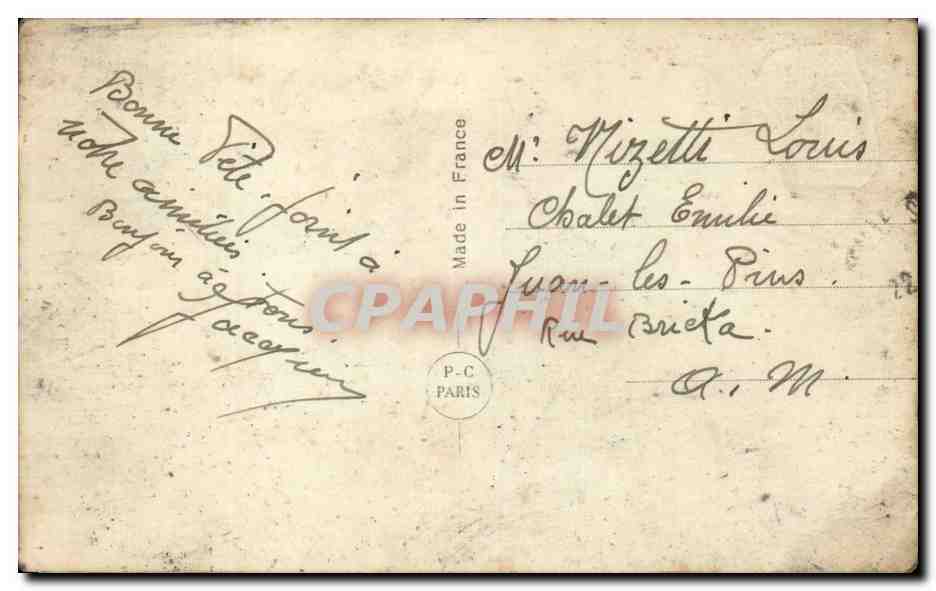 Bonne Fête. Joint à
notre amitiés
Bonjour à Tous
Made in France
P-C
PARIS
CPAPHIL
Mr Nizetti Louis
Chalet Emilie
Juan-les-Pins.
Rue Bricka.
A. M.